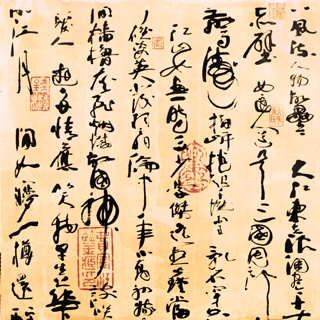 風流人物故壘　大江東去浪淘盡千古
赤壁　西邊人道是三國周郎
驚濤拍岸捲起千堆　亂石穿空
江山如畫一時多少豪傑遙想公瑾當
了雄姿英發羽扇綸巾　年小喬初嫁
間檣櫓灰飛煙滅故國神游　談笑
髮人　多情應笑我早生華
江月　間如夢一樽還酹